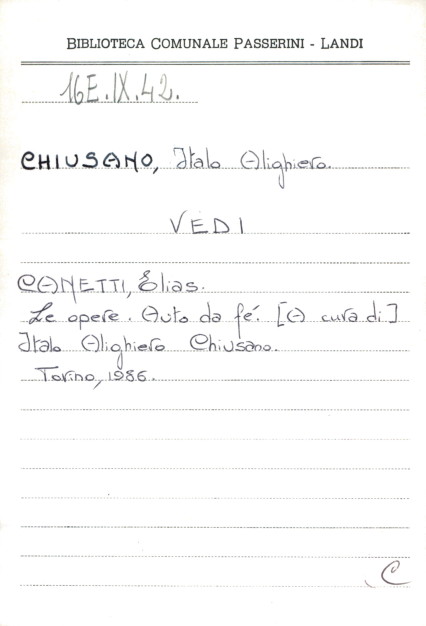 BIBLIOTECA COMUNALE PASSERINI - LANDI
16E.IX.42.
CHIUSANO, Italo Alighiero.
VEDI
CANETTI, Elias.
Le opere. Auto da fé. [A cura di]
Italo Alighiero Chiusano.
Torino, 1986.
C